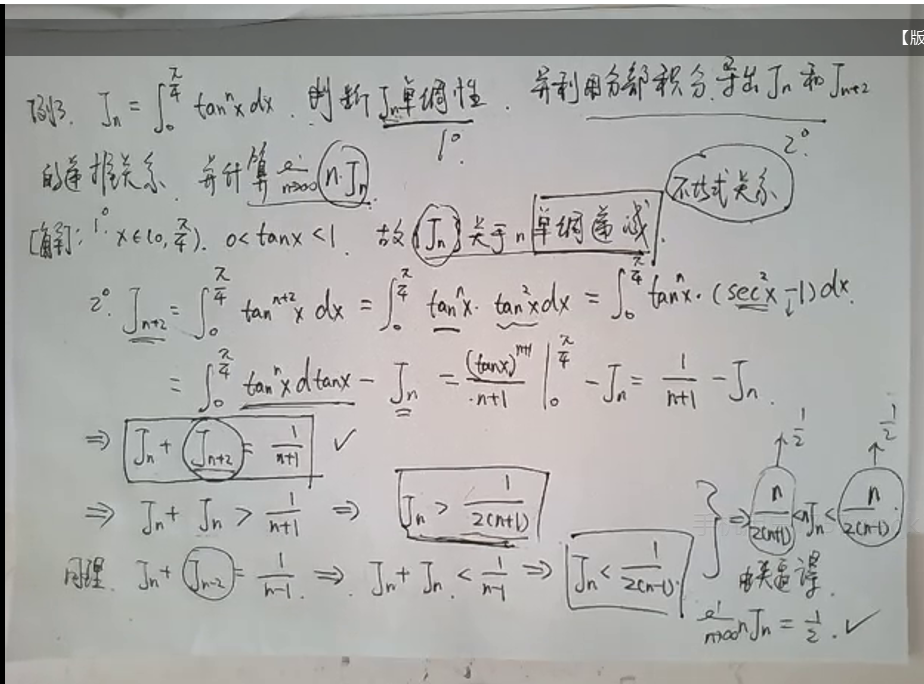 【版
例3. J_n = ∫_0^{π/4} tan^n x dx. 判断J_n单调性. 并利用分部积分.导出J_n和J_{n+2}
1°. 2°.
的递推关系. 并计算 lim_{n→∞} n·J_n. 不等式关系
[解]: 1° x∈(0, π/4). 0<tanx<1. 故{J_n}关于n单调递减.
2°. J_{n+2} = ∫_0^{π/4} tan^{n+2} x dx = ∫_0^{π/4} tan^n x · tan^2 x dx = ∫_0^{π/4} tan^n x · (sec^2 x - 1) dx.
= ∫_0^{π/4} tan^n x d tanx - J_n = (tanx)^{n+1}/(n+1) |_0^{π/4} - J_n = 1/(n+1) - J_n.
⇒ J_n + J_{n+2} = 1/(n+1) ✓
⇒ J_n + J_n > 1/(n+1) ⇒ J_n > 1/(2(n+1))
同理. J_n + J_{n-2} = 1/(n-1) ⇒ J_n + J_n < 1/(n-1) ⇒ J_n < 1/(2(n-1)).
} ⇒ n/(2(n+1)) < nJ_n < n/(2(n-1))
↑ 1/2 ↑ 1/2
由夹逼得.
lim_{n→∞} nJ_n = 1/2. ✓